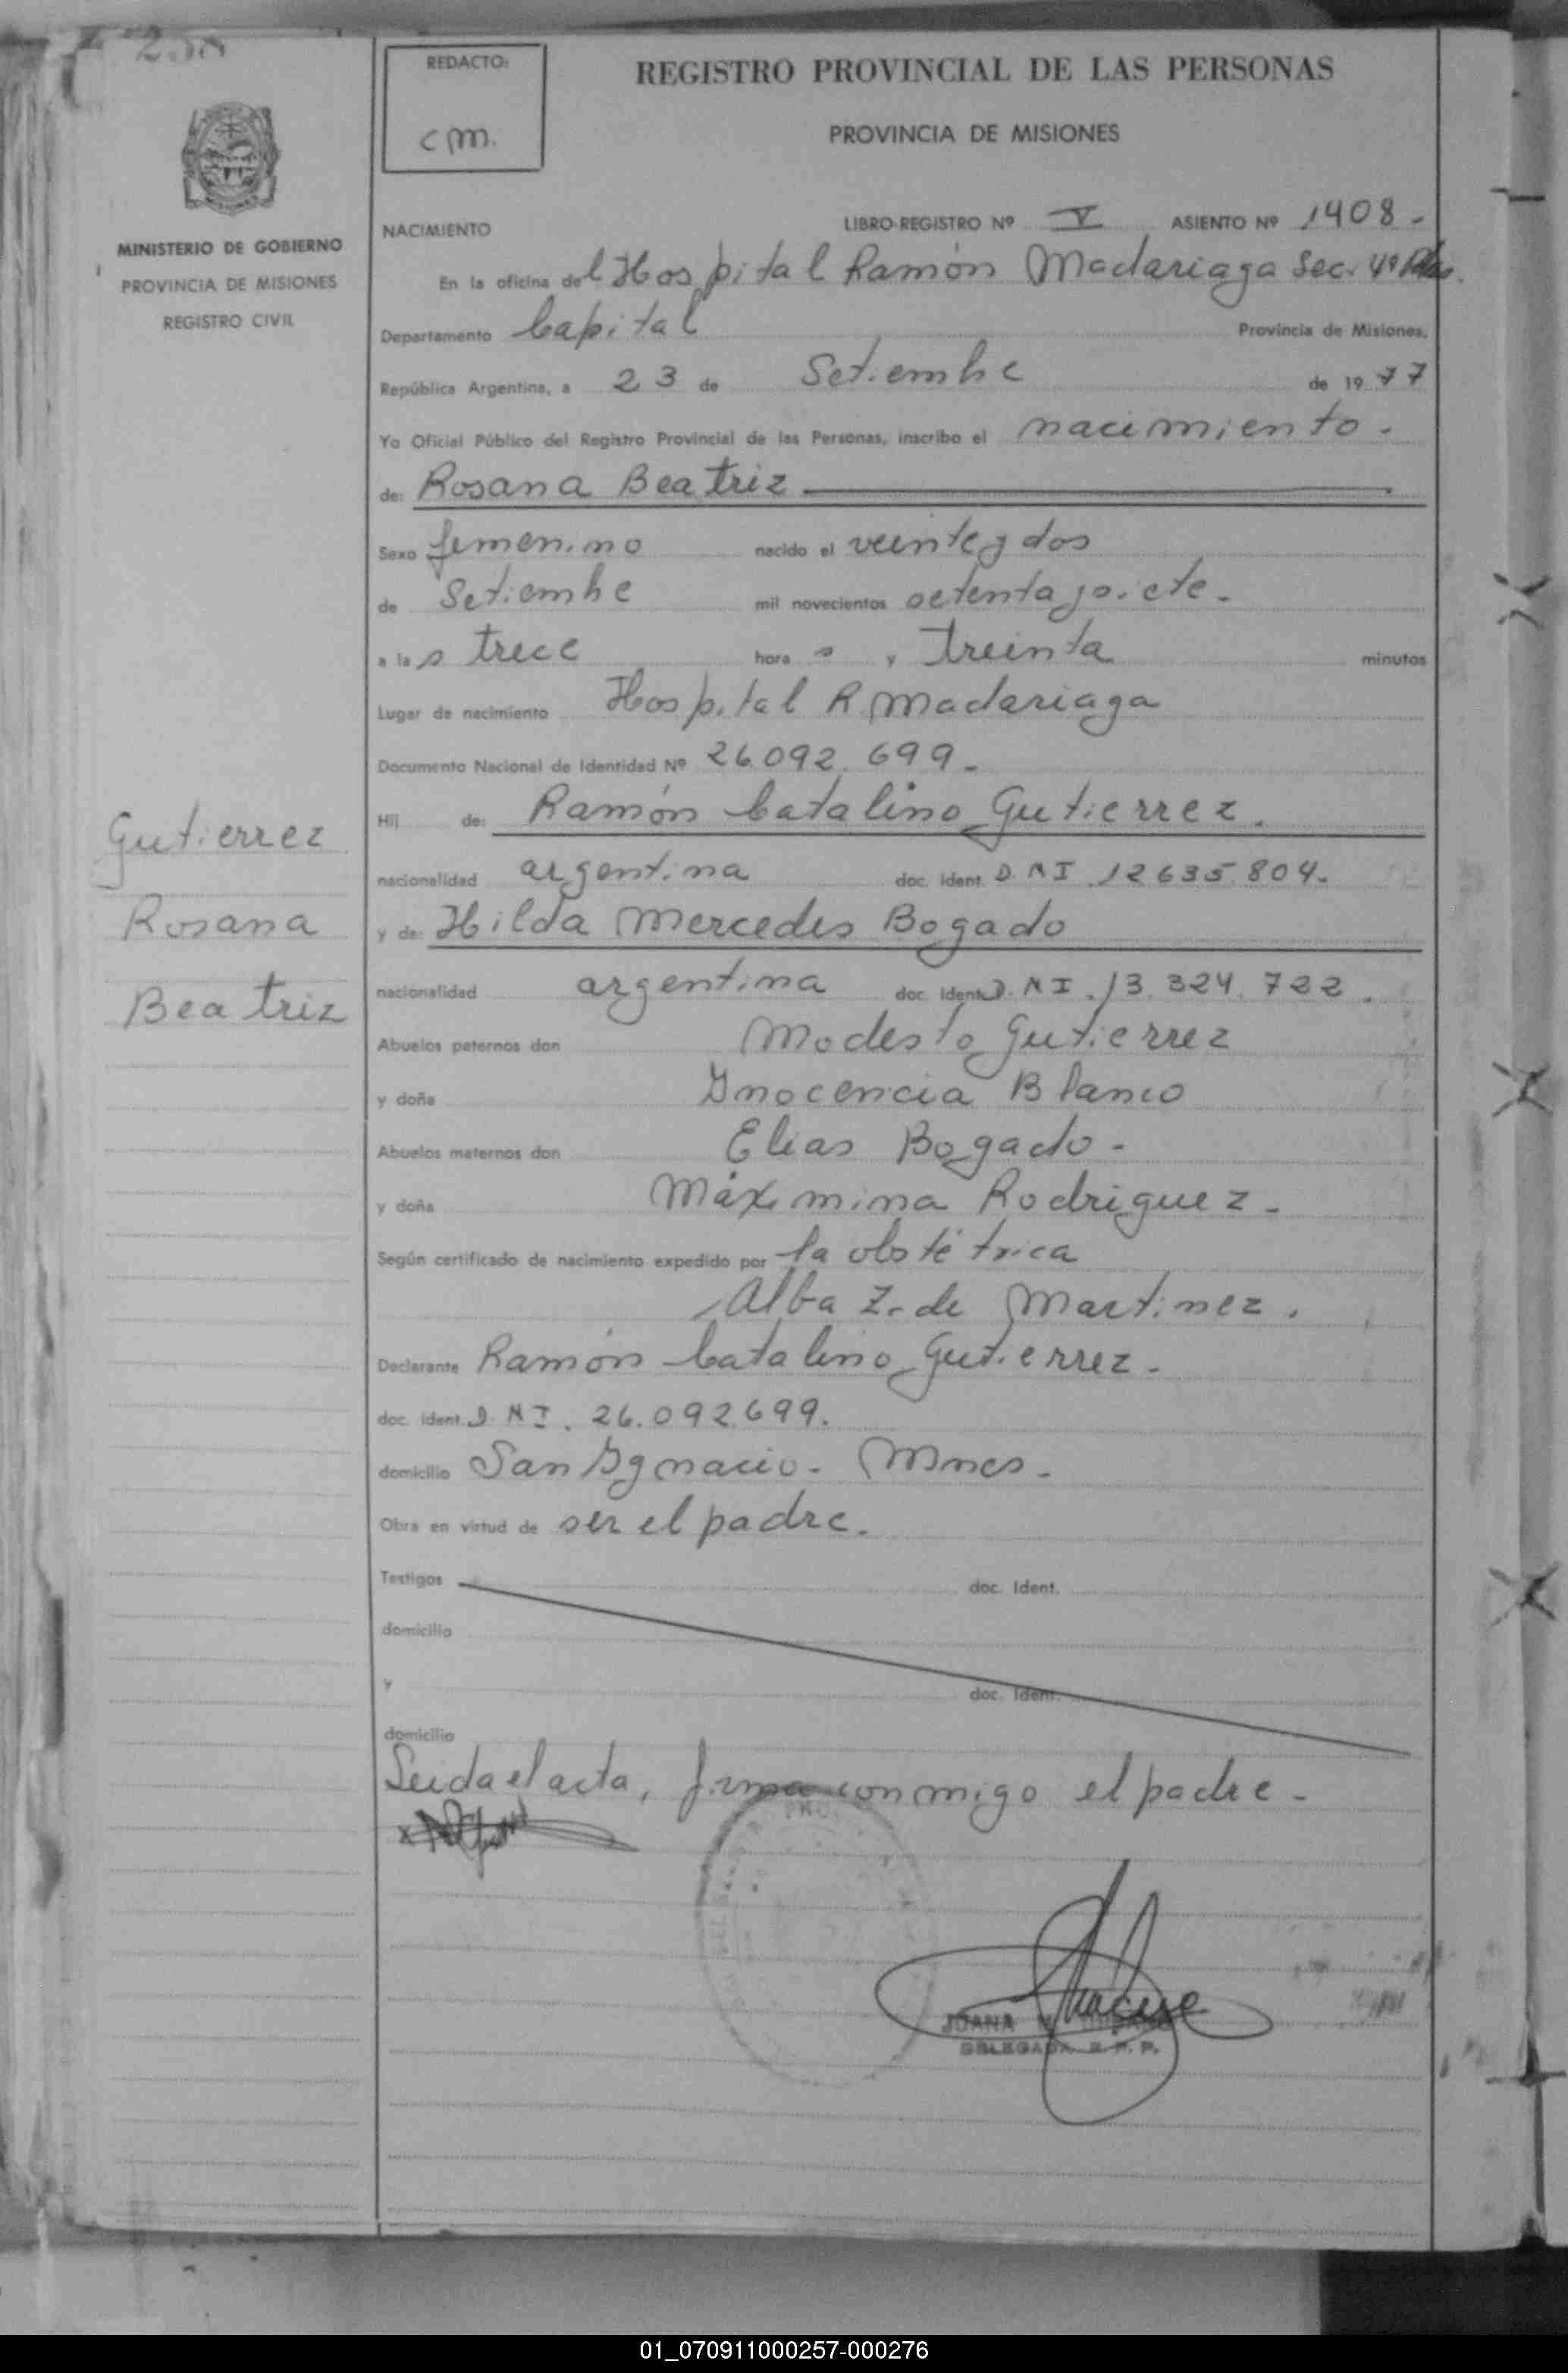 258
REDACTO:
cm.
REGISTRO PROVINCIAL DE LAS PERSONAS
PROVINCIA DE MISIONES
MINISTERIO DE GOBIERNO
PROVINCIA DE MISIONES
REGISTRO CIVIL
NACIMIENTO LIBRO-REGISTRO Nº V ASIENTO Nº 1408 -
En la oficina del Hospital Ramón Madariaga Sec. 4ª
Departamento Capital Provincia de Misiones.
República Argentina, a 23 de Setiembre de 1977
Yo Oficial Público del Registro Provincial de las Personas, inscribo el nacimiento -
de: Rosana Beatriz
Sexo femenino nacido el veinte y dos
de Setiembre mil novecientos setenta y siete -
a las trece horas y treinta minutos
Lugar de nacimiento Hospital R. Madariaga
Documento Nacional de Identidad Nº 26.092.699 -
Hij de: Ramón Catalino Gutierrez.
nacionalidad argentina doc. Ident. D.N.I 12635.804.
y de: Hilda Mercedes Bogado
nacionalidad argentina doc. Ident. D.N.I. 13.324.722.
Abuelos paternos don Modesto Gutierrez
y doña Ynocencia Blanco
Abuelos maternos don Elias Bogado -
y doña Máximina Rodriguez -
Según certificado de nacimiento expedido por la obstétrica
Alba Z. de Martinez.
Declarante Ramón Catalino Gutierrez -
doc. Ident. D.N.I. 26.092.699.
domicilio San Ygnacio - Mnes -
Obra en virtud de ser el padre.
Testigos doc. Ident.
domicilio
y doc. Ident.
domicilio
Leida el acta, firma conmigo el padre -
JOANA
DELEGADA R. P. P.
Gutierrez
Rosana
Beatriz
01_070911000257-000276